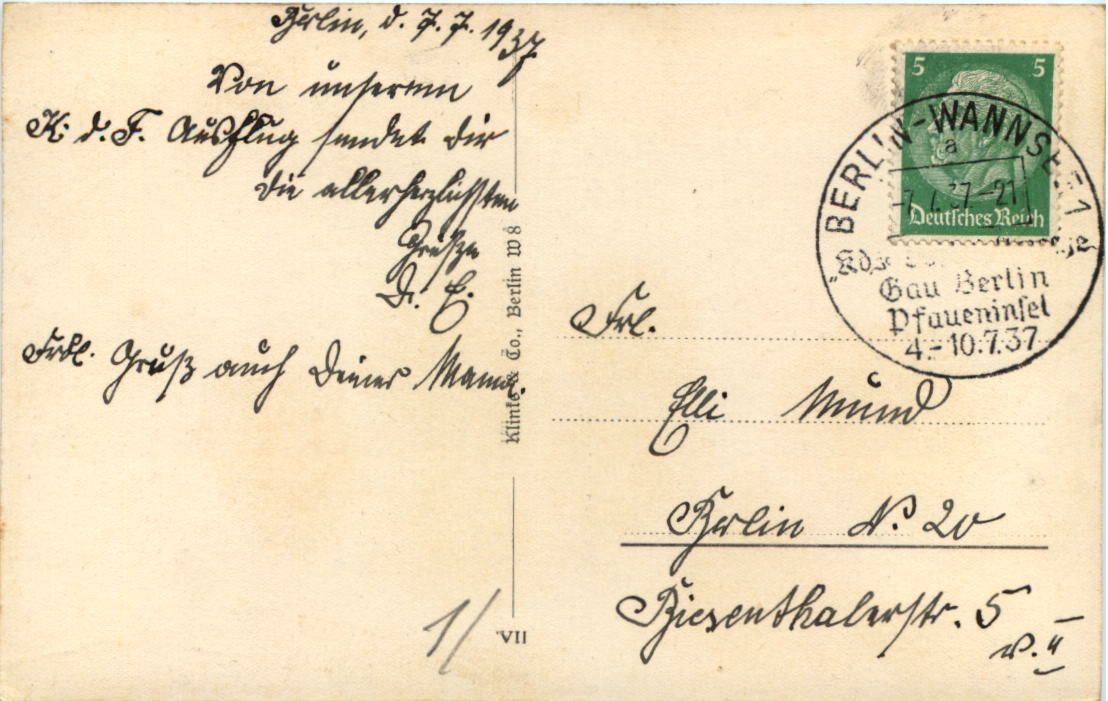 Berlin, d. 7.7.1937
Von unserem
K. d. F. Ausflug sendet Dir
die allerherzlichsten
Grüße
D. E.
Frdl. Gruß auch Deiner Mama.
Klinke & Co., Berlin W 8
VII
1/
5 5
Deutsches Reich
BERLIN-WANNSEE 1
a
-7.7.37-21
"KdF
Gau Berlin
Pfaueninsel
4.-10.7.37
Frl.
Elli Mund
Berlin N. 20
Biesenthalerstr. 5
v. II